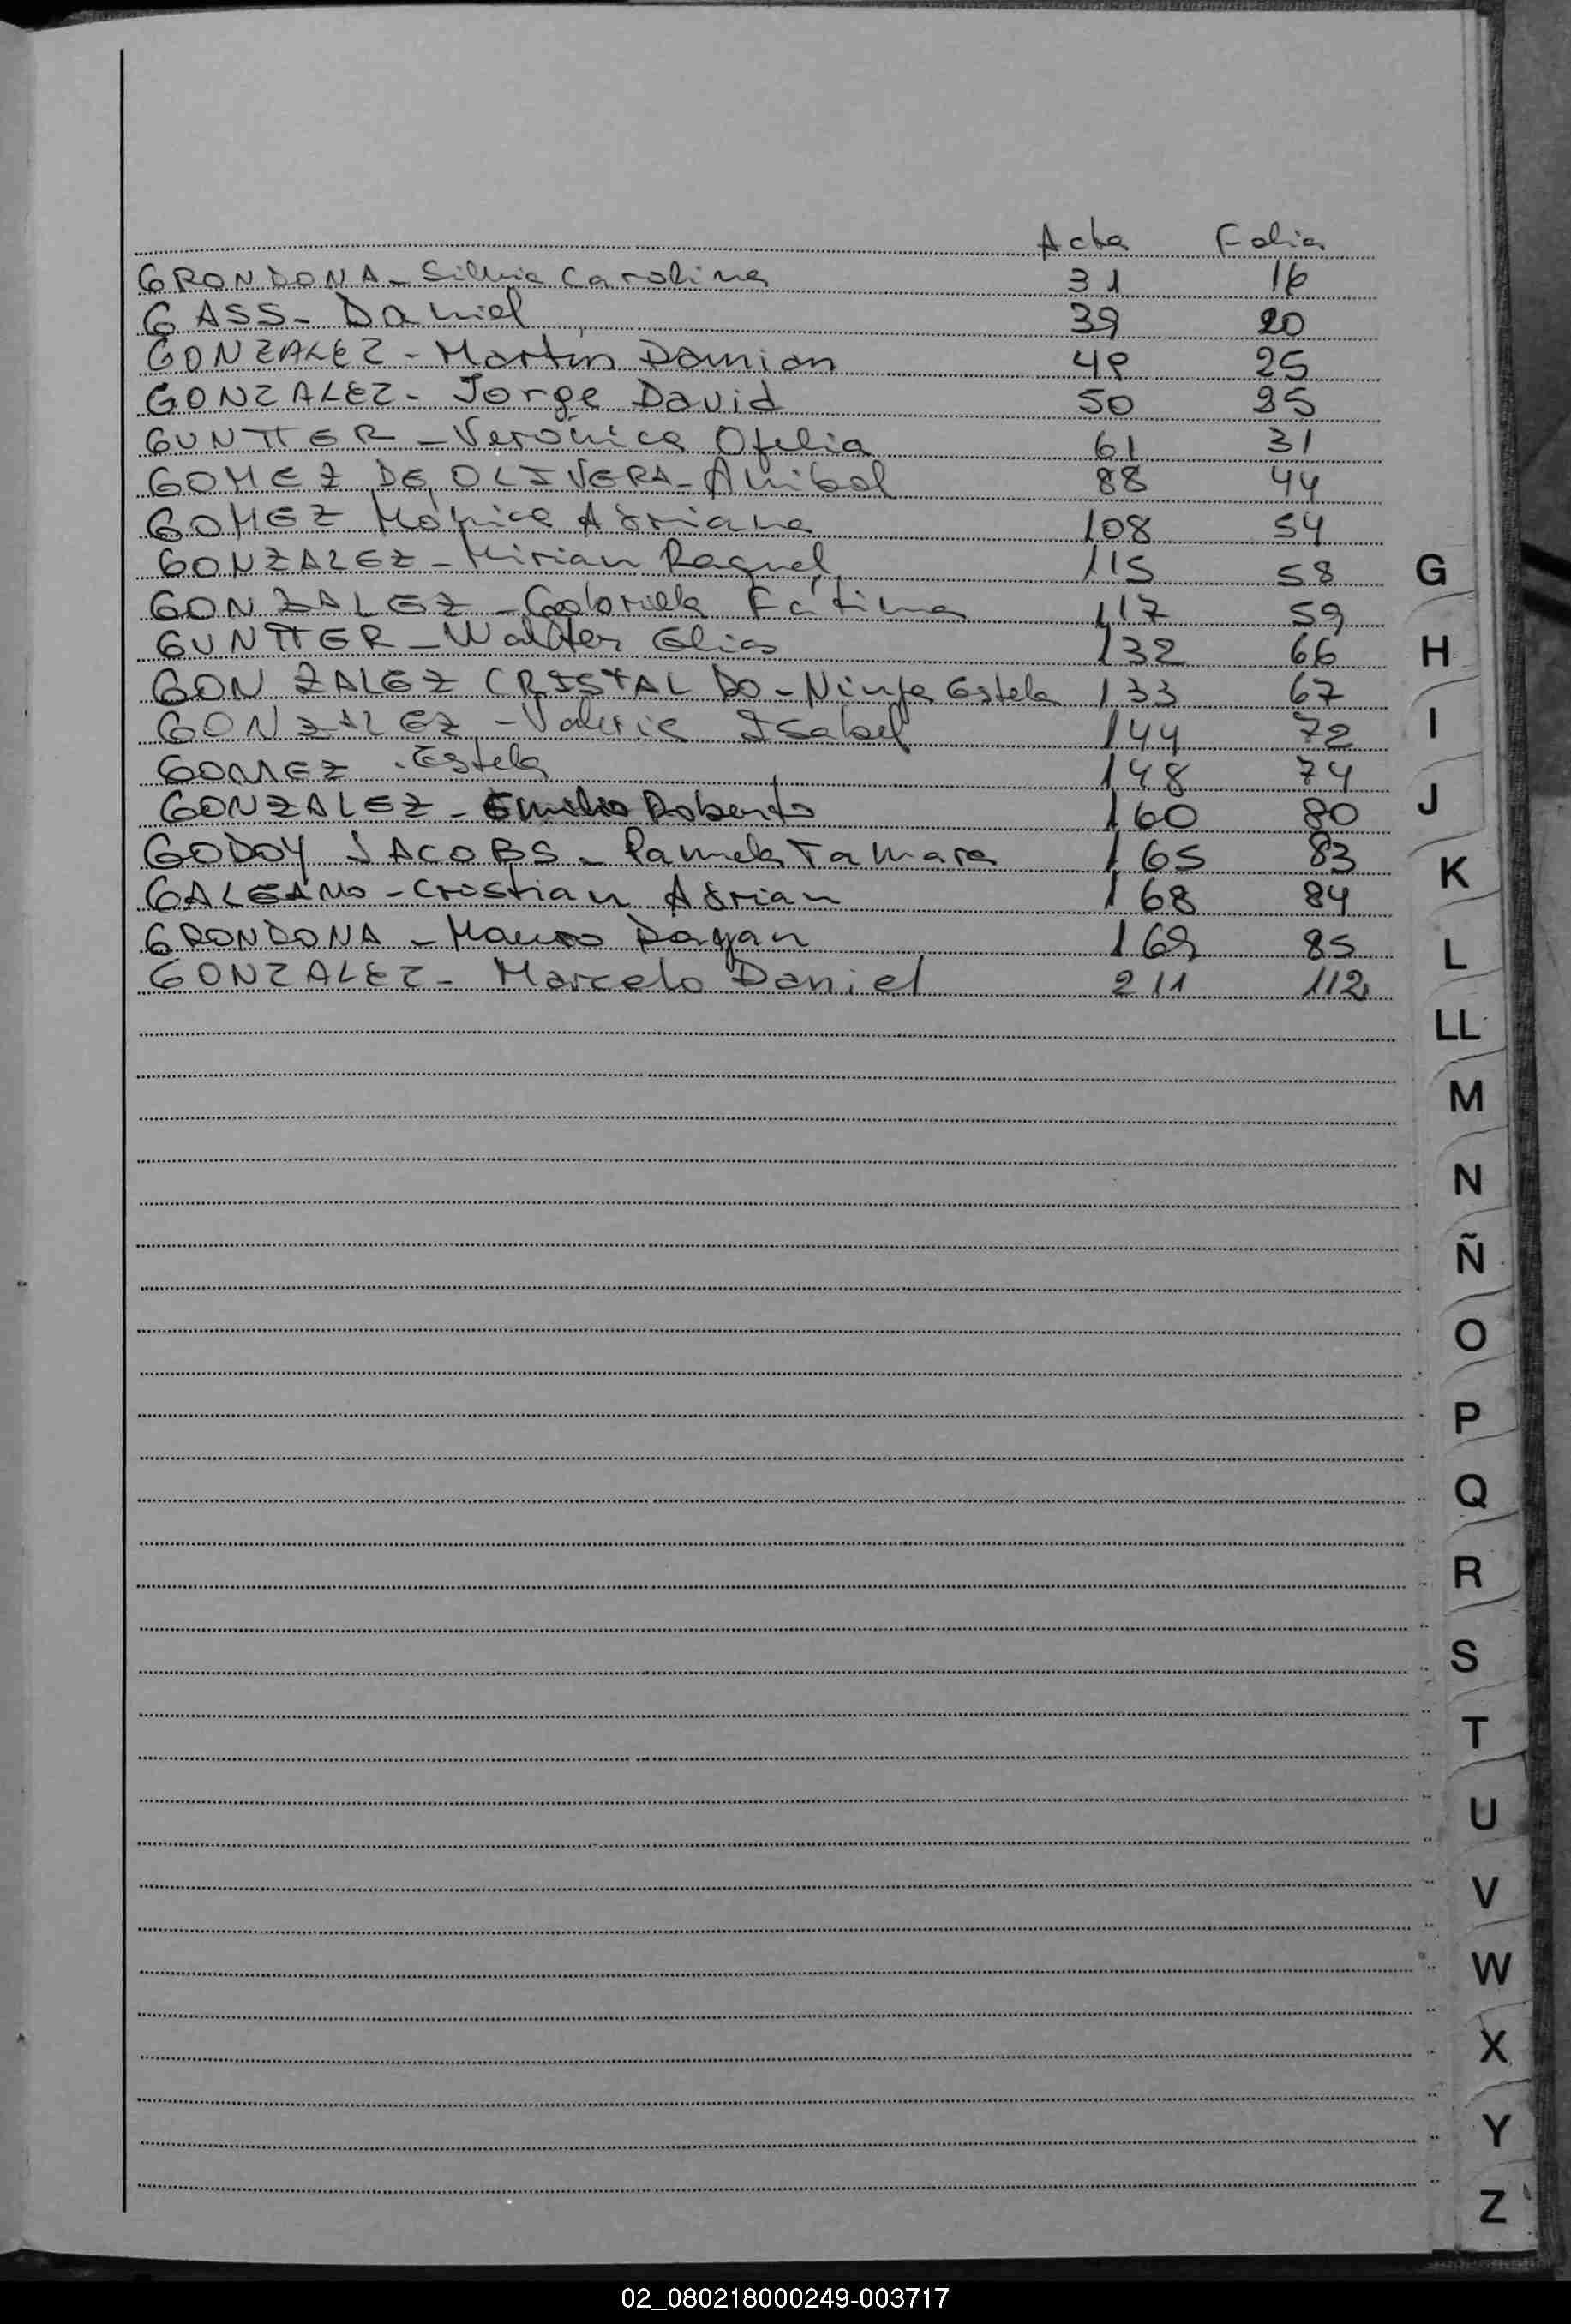 Acta Folio
GRONDONA - Silvia Carolina 31 16
GASS - Daniel 39 20
GONZALEZ - Martín Damian 49 25
GONZALEZ - Jorge David 50 25
GUNTTER - Verónica Ofelia 61 31
GOMEZ DE OLIVERA - Anibal 88 44
GOMEZ Mónica Adriana 108 54
GONZALEZ - Mirian Raquel 115 58
GONZALEZ - Gabriela Fátima 117 59
GUNTTER - Walter Elias 132 66
GONZALEZ CRISTALDO - Ninfa Estela 133 67
GONZALEZ - Valeria Isabel 144 72
GOMEZ . Estela 148 74
GONZALEZ - Emilio Roberto 160 80
GODOY JACOBS - Pamela Tamara 165 83
GALEANO - Cristian Adrian 168 84
GRONDONA - Mauro Dayan 169 85
GONZALEZ - Marcelo Daniel 211 112
G
H
I
J
K
L
LL
M
N
Ñ
O
P
Q
R
S
T
U
V
W
X
Y
Z
02_080218000249-003717